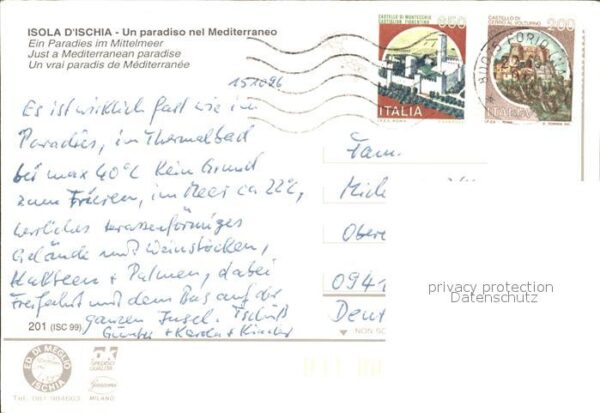 ISOLA D'ISCHIA - Un paradiso nel Mediterraneo
Ein Paradies im Mittelmeer
Just a Mediterranean paradise
Un vrai paradis de Méditerranée
CASTELLO DI MONTECCHIO
CASTIGLION FIORENTINO
650
ITALIA
CASTELLO DI
CERRO AL VOLTURNO
200
ITALIA
Es ist wirklich fast wie im
Paradies, im Thermalbad
bei max 40°C kein Grund
zum Frieren, im Meer ca 22°C,
herrliches terrassenförmiges
Gelände mit Weinstöcken,
Kakteen + Palmen, dabei
Freifahrt mit dem Bus auf der
ganzen Insel. Tschüß
Günter + Karola + Kinder
Fam.
Obere
0941
Deut
privacy protection
Datenschutz
201 (ISC 99)
ED. DI MEGLIO
ISCHIA
TEL. 081
MILANO